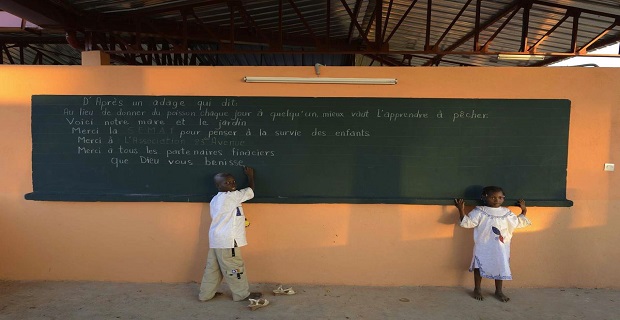 D'Après un adage qui dit:
Au lieu de donner du poisson chaque jour à quelqu'un, mieux vaut l'apprendre à pêcher.
Voici notre mare et le jardin
Merci la pour penser à la survie des enfants
Merci à L'Association Avenir
Merci à tous les partenaires finaciers
que Dieu vous benisse